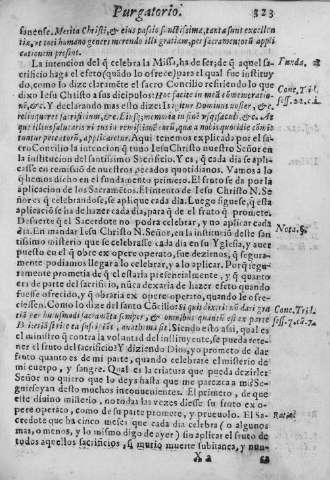 Purgatorio. 323
sanense. Merita Christi, & eius passio sanctissima, tantæ sunt excellen
tiæ, vt toti humano generi merendo illi gratiam, per sacramentorũ appli
cationem prosint.
La intencion del q̃ celebra la Missa, ha de ser; de q̃ aquel sa-
crificio haga el efeto (quãdo lo ofrece) para el qual fue instituy
do, como lo dize claramẽte el sacro Concilio refiriendo lo que
dixo Iesu Christo a sus dicipulos:
nũ, &c. Y declarando mas esto dize: Is igitur Dominus noster, &c.
relinqueret sacrificium, &c.
Aqui tenemos explicado por el sa-
cro Concilio la intencion q̃ tuuo Iesu Christo nuestro Señor en
la institucion del santissimo Sacrificio. Y es, q̃ cada dia se apli-
casse en remission de nuestros pecados quotidianos. Vamos a lo
que hemos dicho en el fundamento primero. El fruto se da por la
aplicacion de los Sacramẽtos. El intento de Iesu Christo N. Se-
ñor es q̃ celebrandose, se aplique cada dia. Luego siguese, q̃ esta
aplicaciõ se ha de hazer cada dia, para q̃ de el fruto q̃ promete.
De suerte q̃ el Sacerdote no podra celebrar, y no aplicar cada
dia. En mandar Iesu Christo N. Señor, en la institució deste san
tissimo misterio que se celebrasse cada dia en su Yglesia, y auer
puesto en el q̃ obre ex opere operato, fue dezirnos, q̃ segura-
mente podiamos llegar a lo celebrar, y a lo aplicar. Porq̃ segu-
ramente prometia de q̃ el estaria presencialmente, y q̃ quanto
era de parte del sacrificio, nũca dexaria de hazer efeto quando
fuesse ofrecido, y q̃ obraria ex opere operato, quando le ofre-
ciessen. Como lo dize del santo Cõcilio: Si quis dixerit nõ dari gra
tiã per huiusmodi sacramẽta semper, & omnibus quantũ est ex parte
Dei etiã si rite ea suscipiant, anathema sit. Siendo esto assi, qual es
el ministro q̃ contra la voluntad del instituyente, se pueda rete-
ner el fruto del sacrificio? Y diziendo Dios, yo prometo de dar
fruto quanto es de mi parte, quando celebrare el misterio de
mi cuerpo, y sangre. Qual es la criatura que pueda dezirle:
Señor no quiero que lo deys hasta que me parezca a mi? Si-
guense yan desto muchos inconuenientes. El primero, de que
este diuino misterio, no todas las vezes diesse su fruto ex o-
pere operato, como de su parte promete, y prueuolo. El Sa-
cerdote que ha cinco meses que cada dia celebra (o algunos
mas, o menos, y lo mismo digo de ayer) sin aplicar el fruto de
todos aquellos sacrificios, si murio muerte subitanea, y nun-
X 2
Funda. 2
Conc. Trid.
sess. 22. c. 1.
Nota. §.
Conc. Trid.
sess. 7. cã. 7.